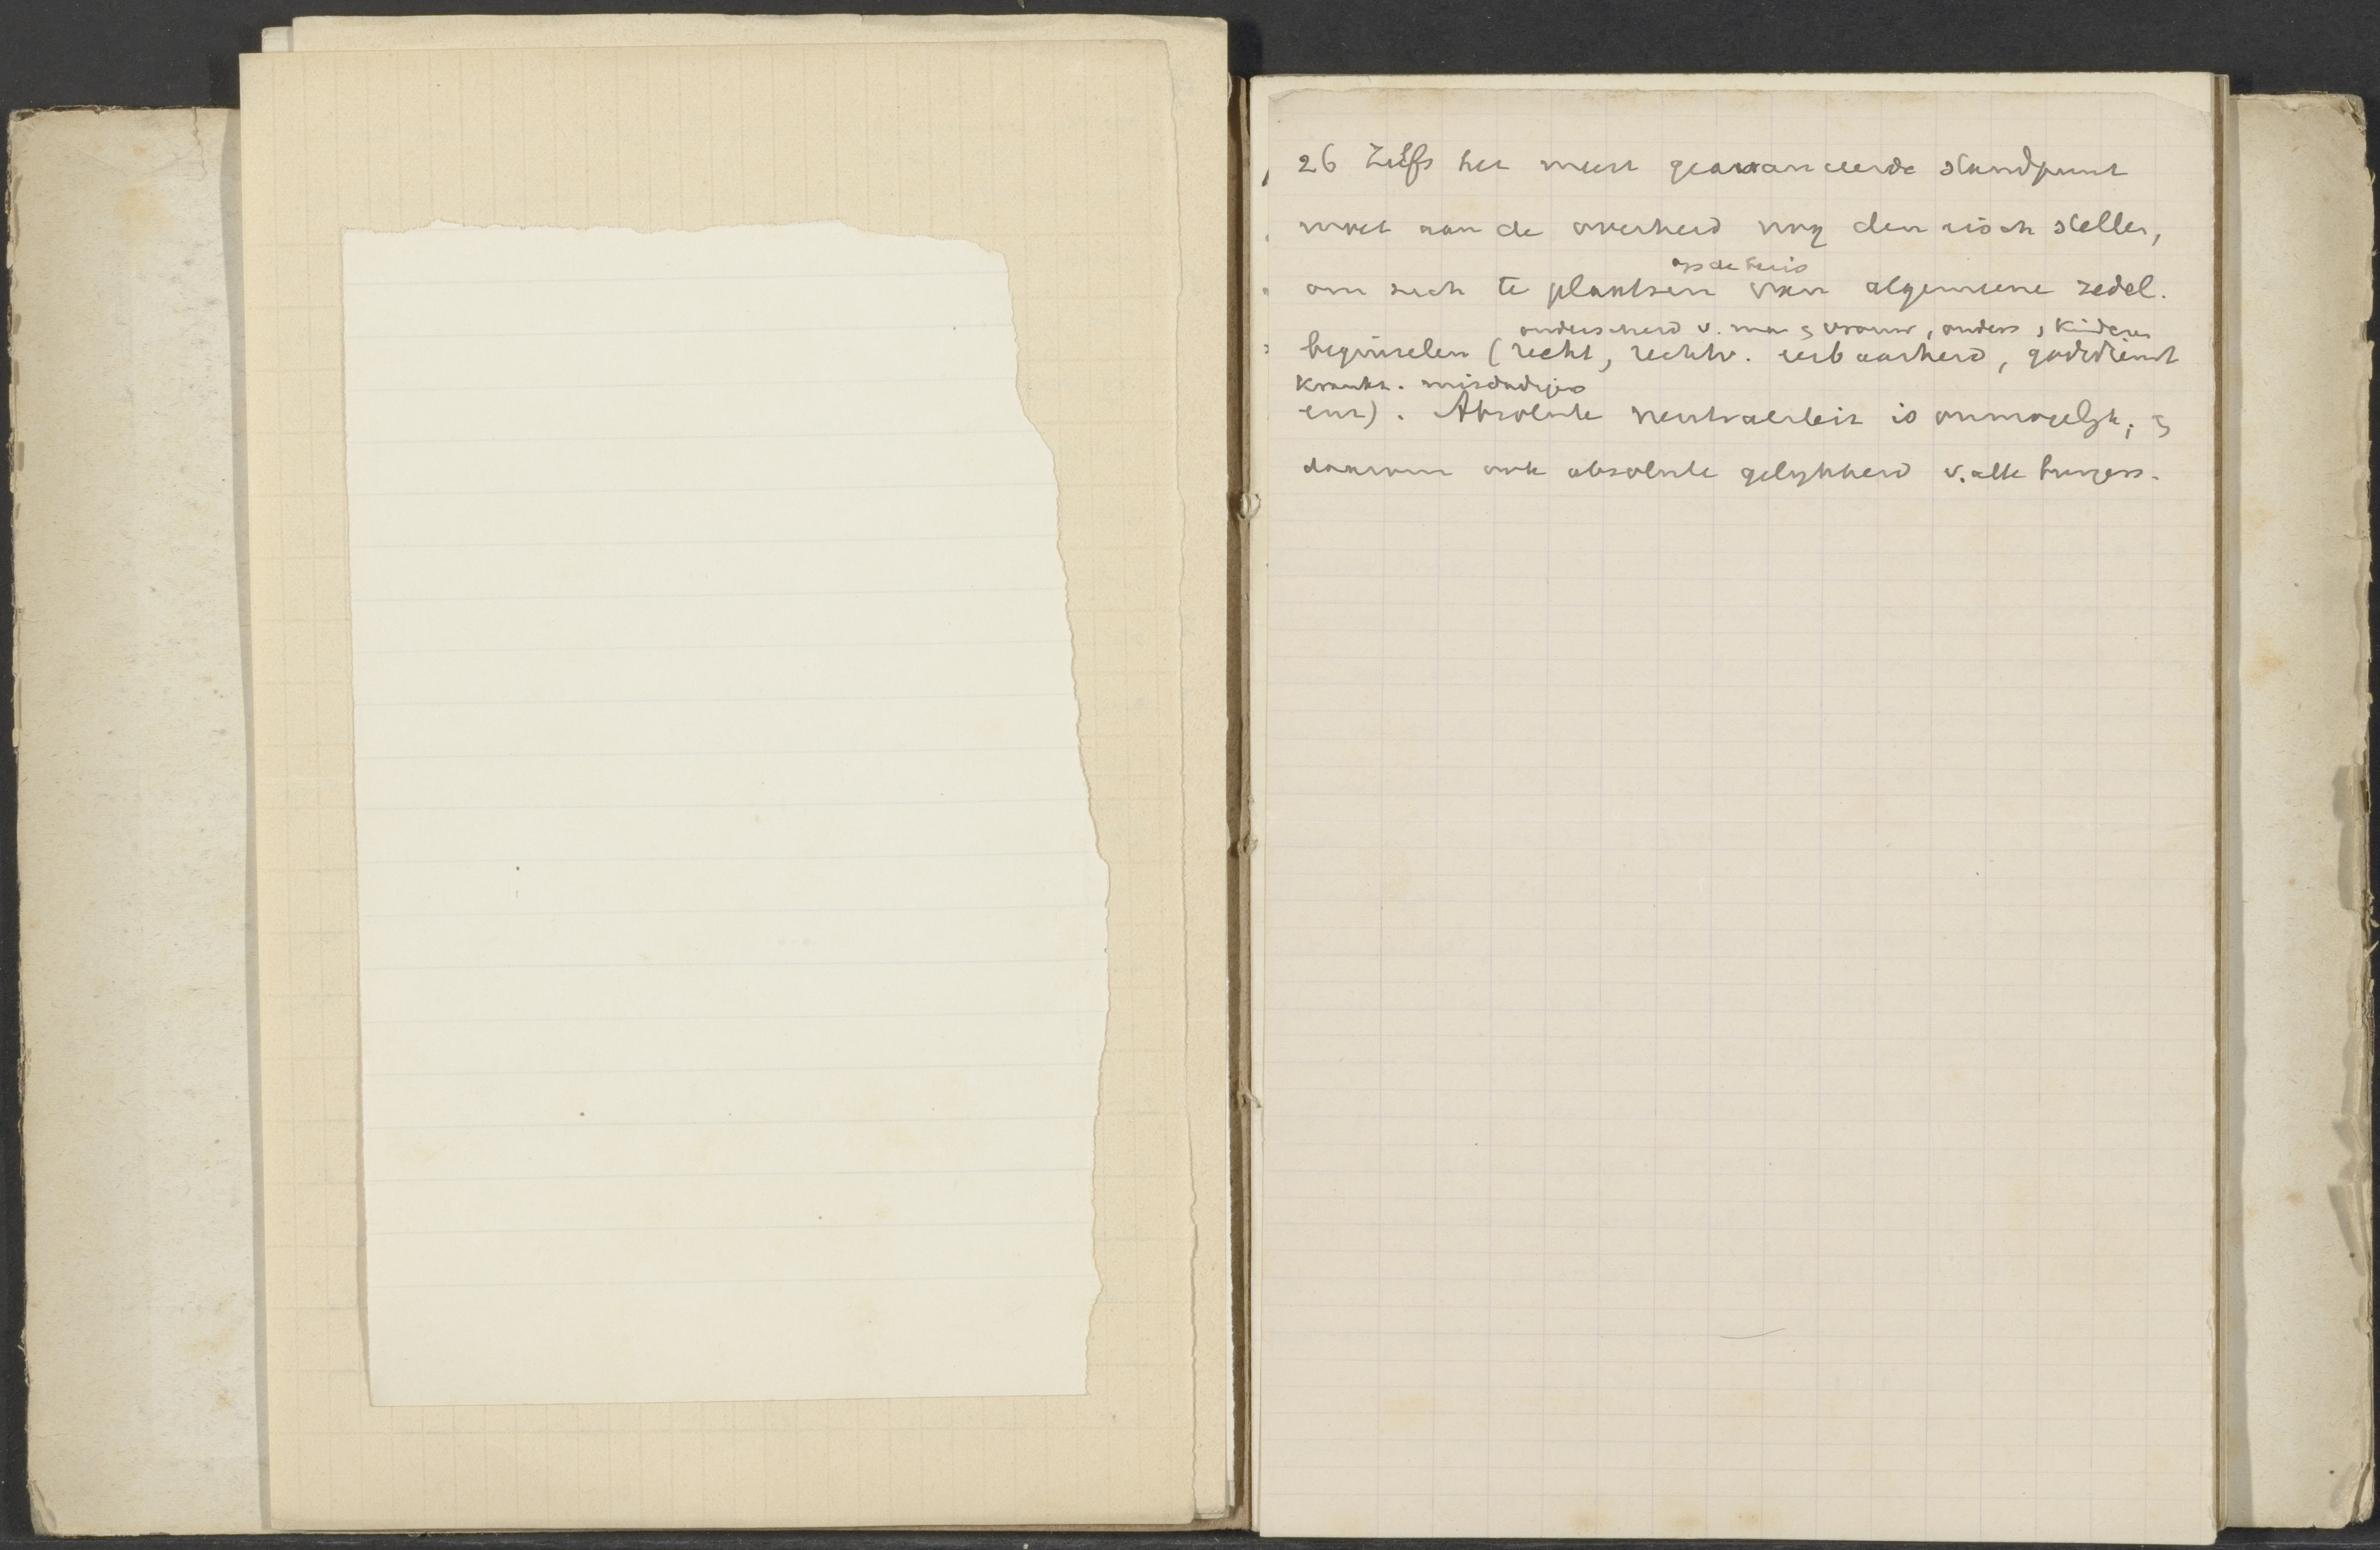 26 Zelfs het meest geavanceerde standpunt
moet aan de overheid nog den eisch stellen,
op de basis
om zich te plaatsen van algemeene zedel.
onderscheid v. man & vrouw, ouders, kinderen
beginselen (recht, rechtv. eerbaarheid, godsdienst
krankz. misdadigers
enz). Absolute neutraliteit is onmogelijk; &
daarom ook absolute gelijkheid v. alle burgers.